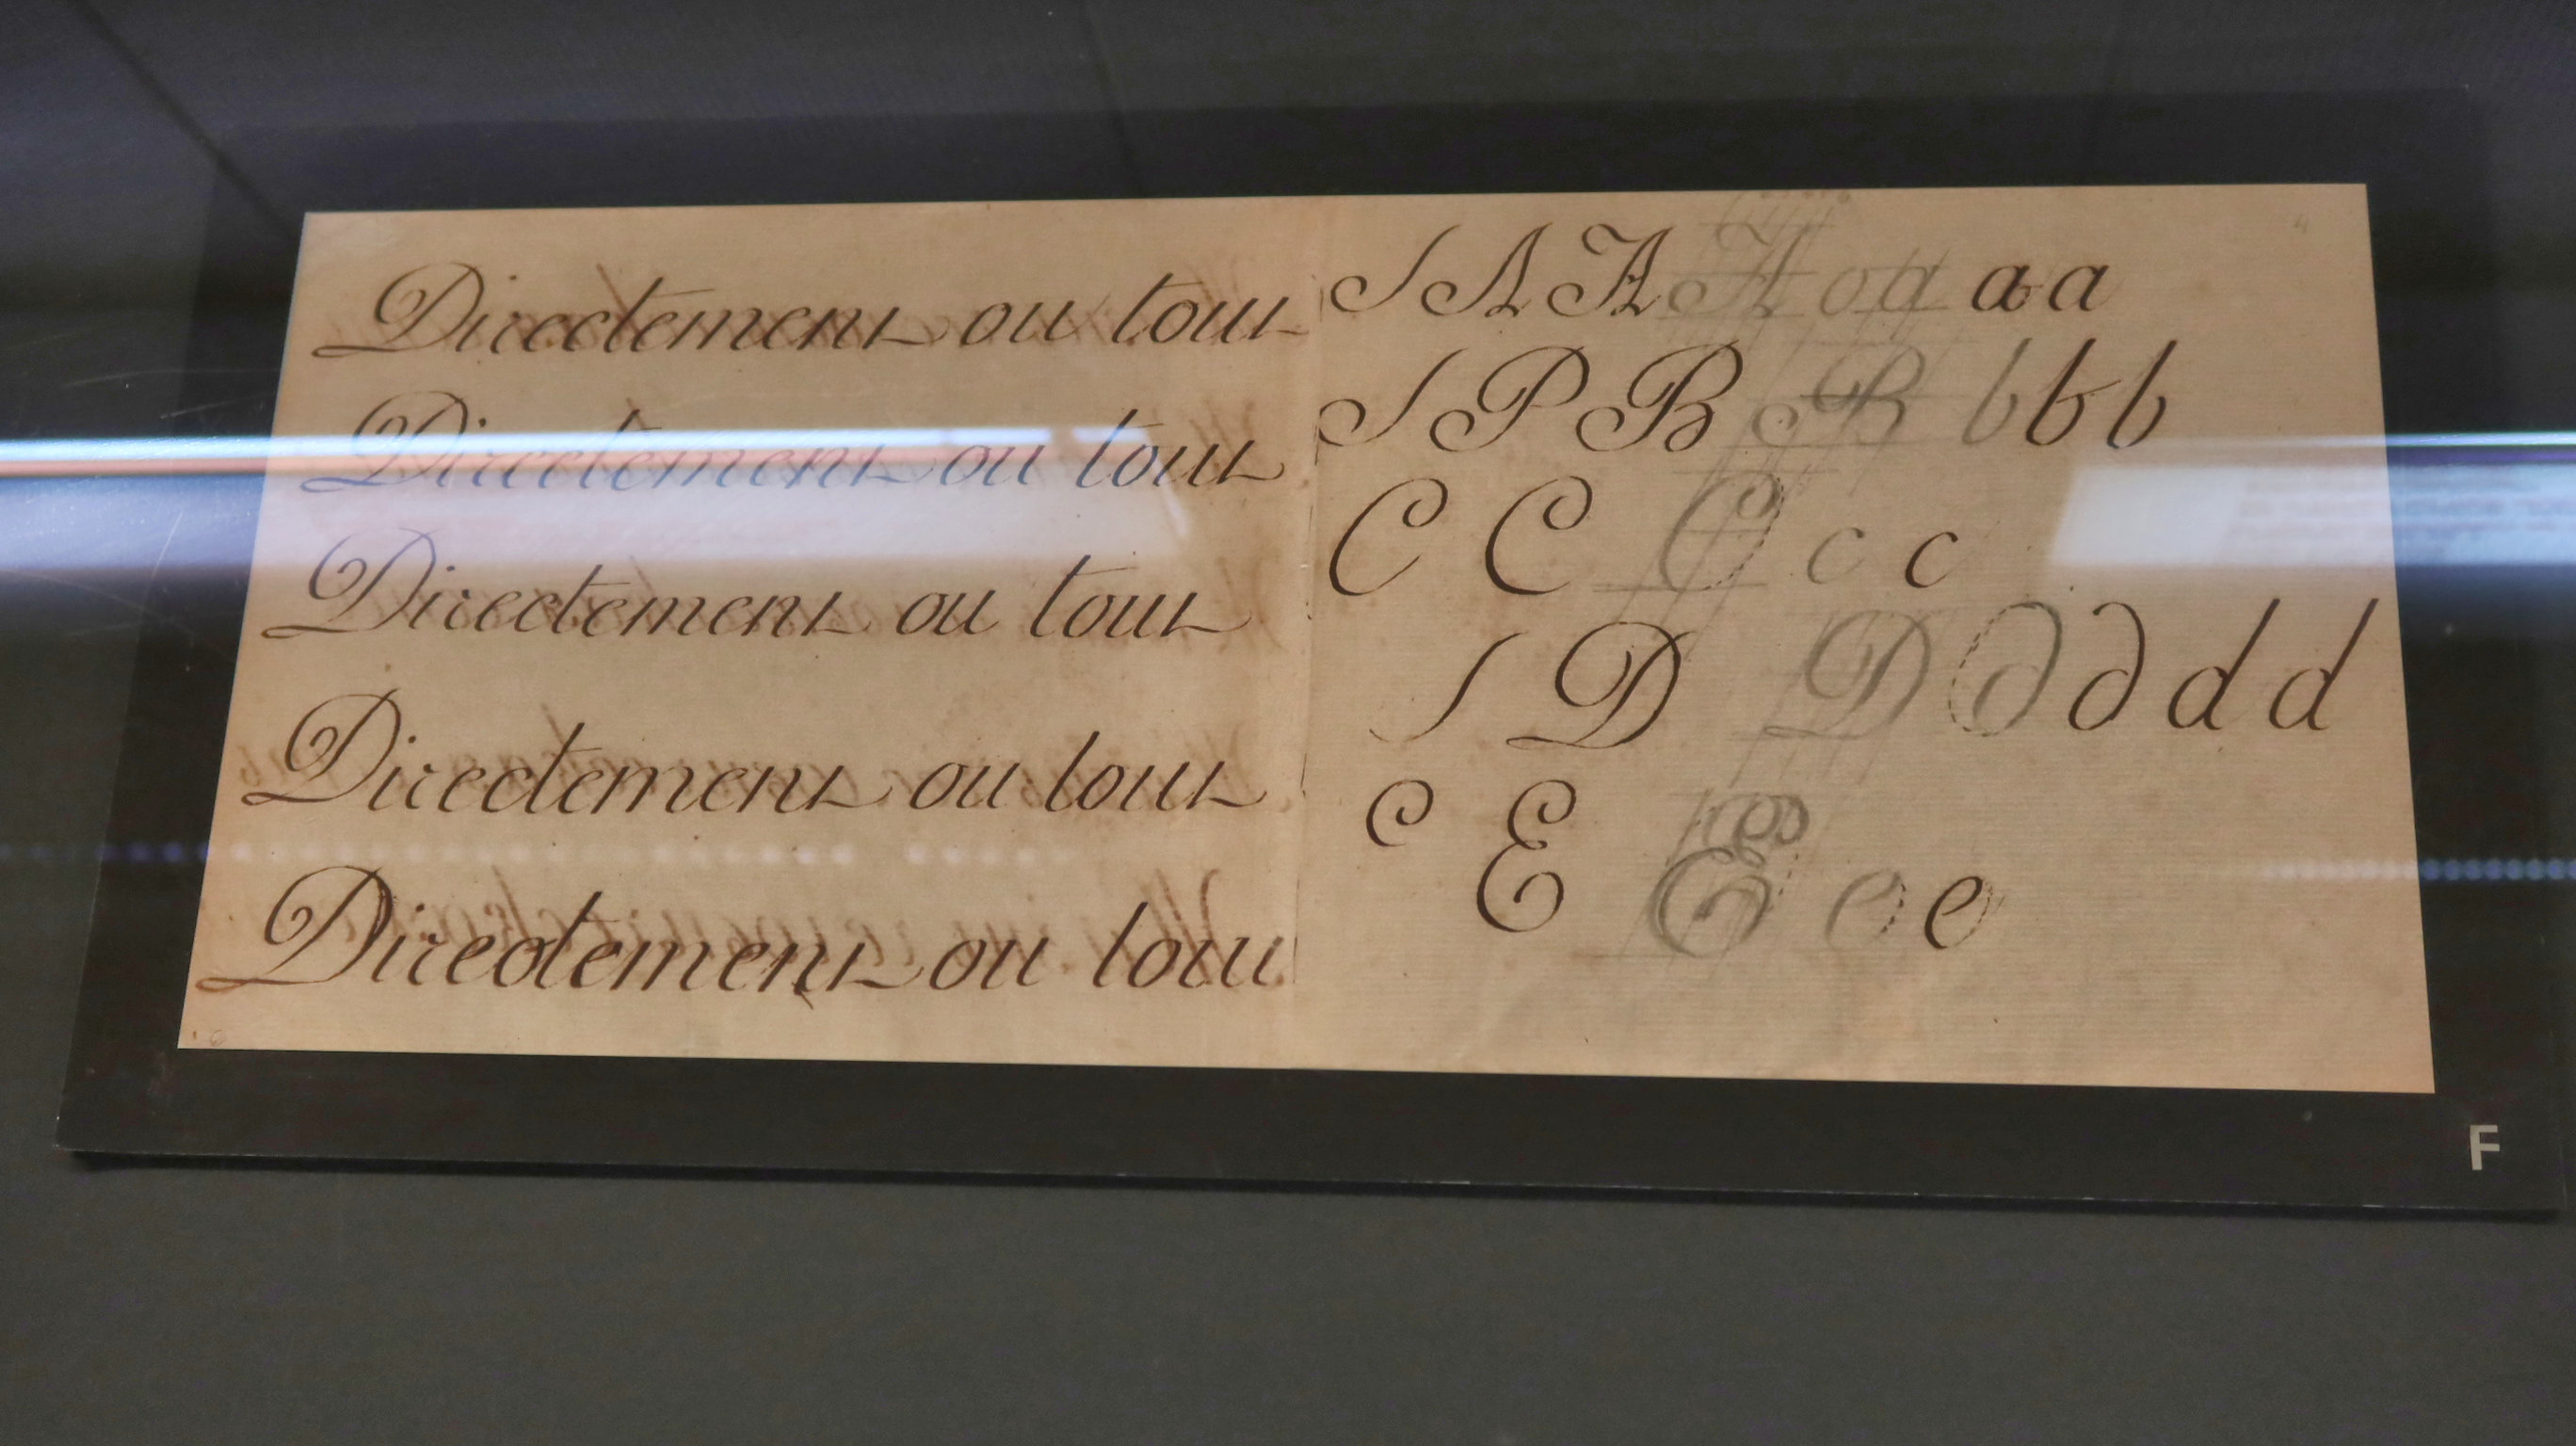 Directement ou tout
Directement ou tout
Directement ou tout
Directement ou tout
Directement ou tout
A A A o a a a
P B B b b b
C C C c c
D D d d d d
C E E e e
F